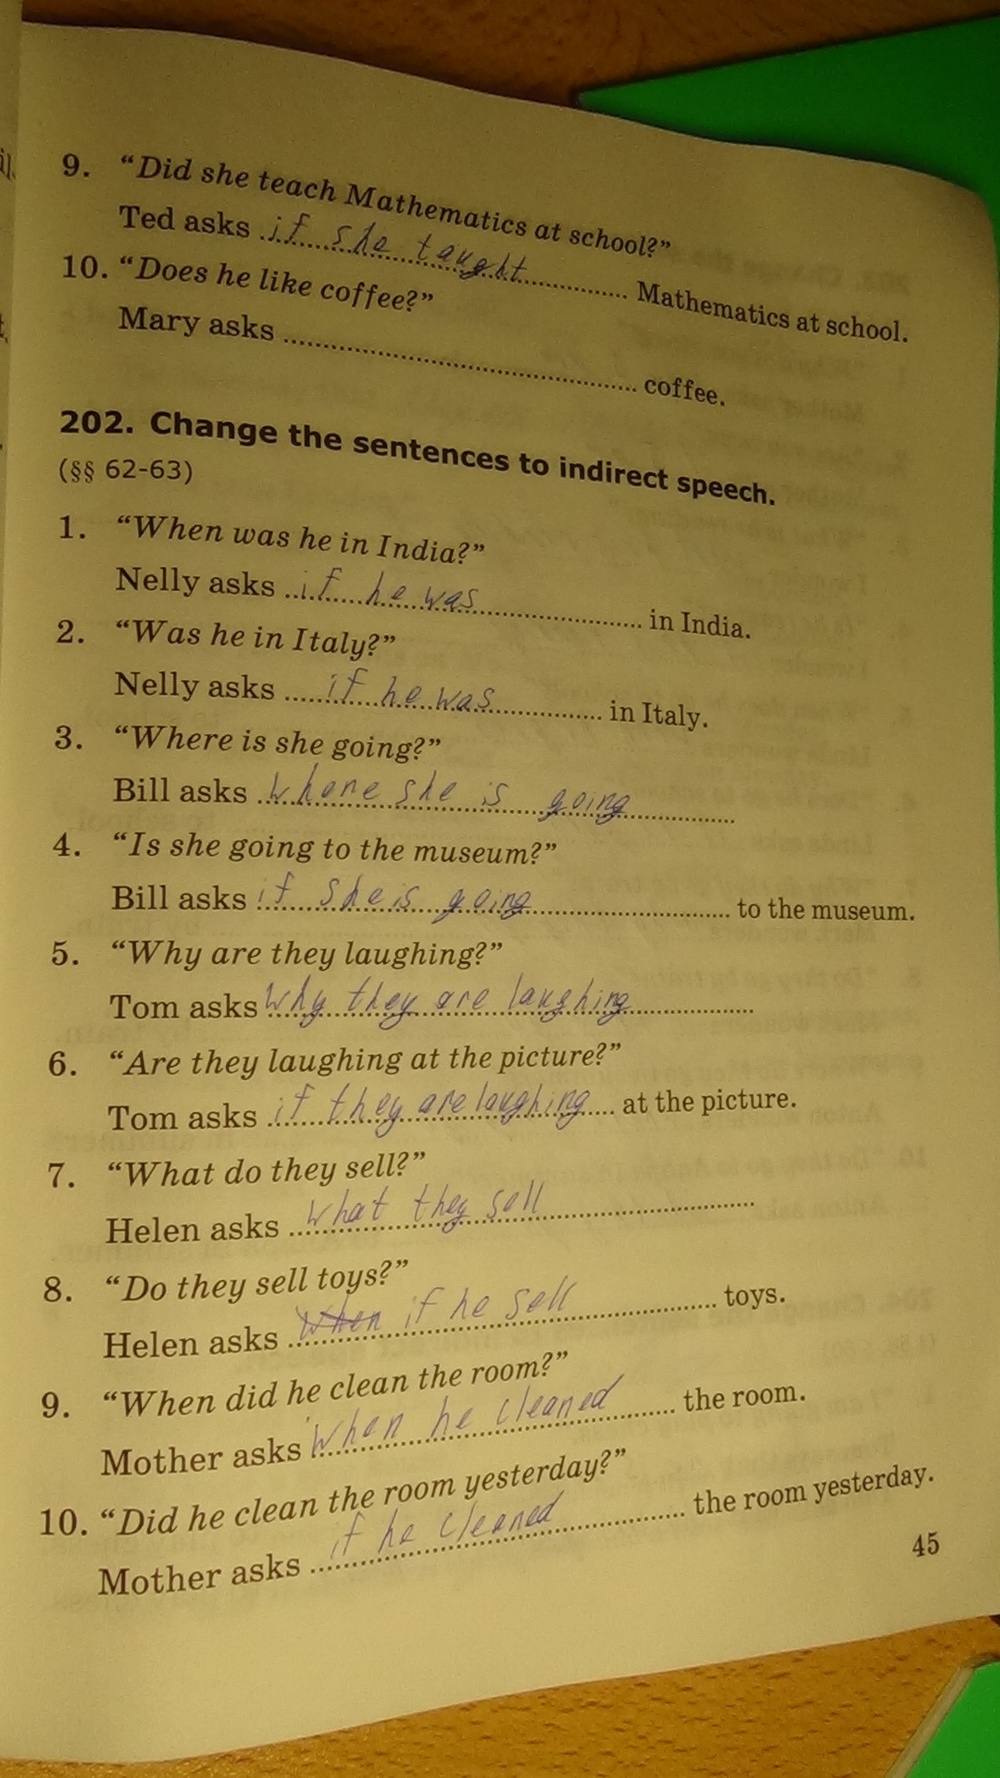 9. “Did she teach Mathematics at school?”
Ted asks if she taught Mathematics at school.
10. “Does he like coffee?”
Mary asks ........ coffee.
202. Change the sentences to indirect speech.
(§§ 62-63)
1. “When was he in India?”
Nelly asks if he was in India.
2. “Was he in Italy?”
Nelly asks if he was in Italy.
3. “Where is she going?”
Bill asks Where she is going
4. “Is she going to the museum?”
Bill asks if she is going to the museum.
5. “Why are they laughing?”
Tom asks Why they are laughing
6. “Are they laughing at the picture?”
Tom asks if they are laughing at the picture.
7. “What do they sell?”
Helen asks What they sell
8. “Do they sell toys?”
Helen asks When if he sell toys.
9. “When did he clean the room?”
Mother asks When he cleaned the room.
10. “Did he clean the room yesterday?”
Mother asks if he cleaned the room yesterday.
45